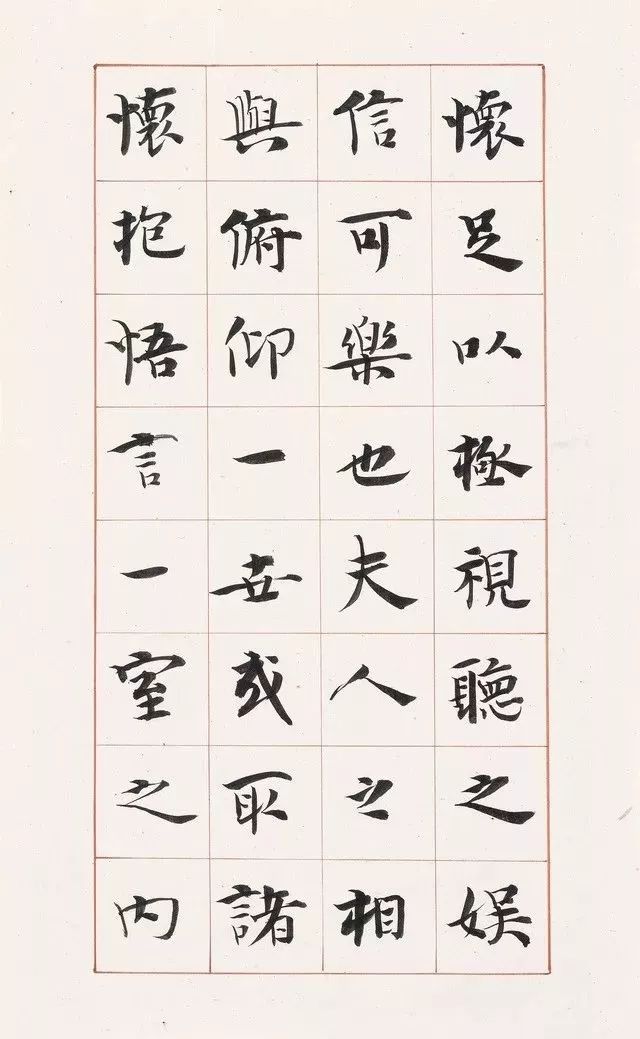 懷足以極視聽之娱
信可樂也夫人之相
與俯仰一世或取諸
懷抱悟言一室之内